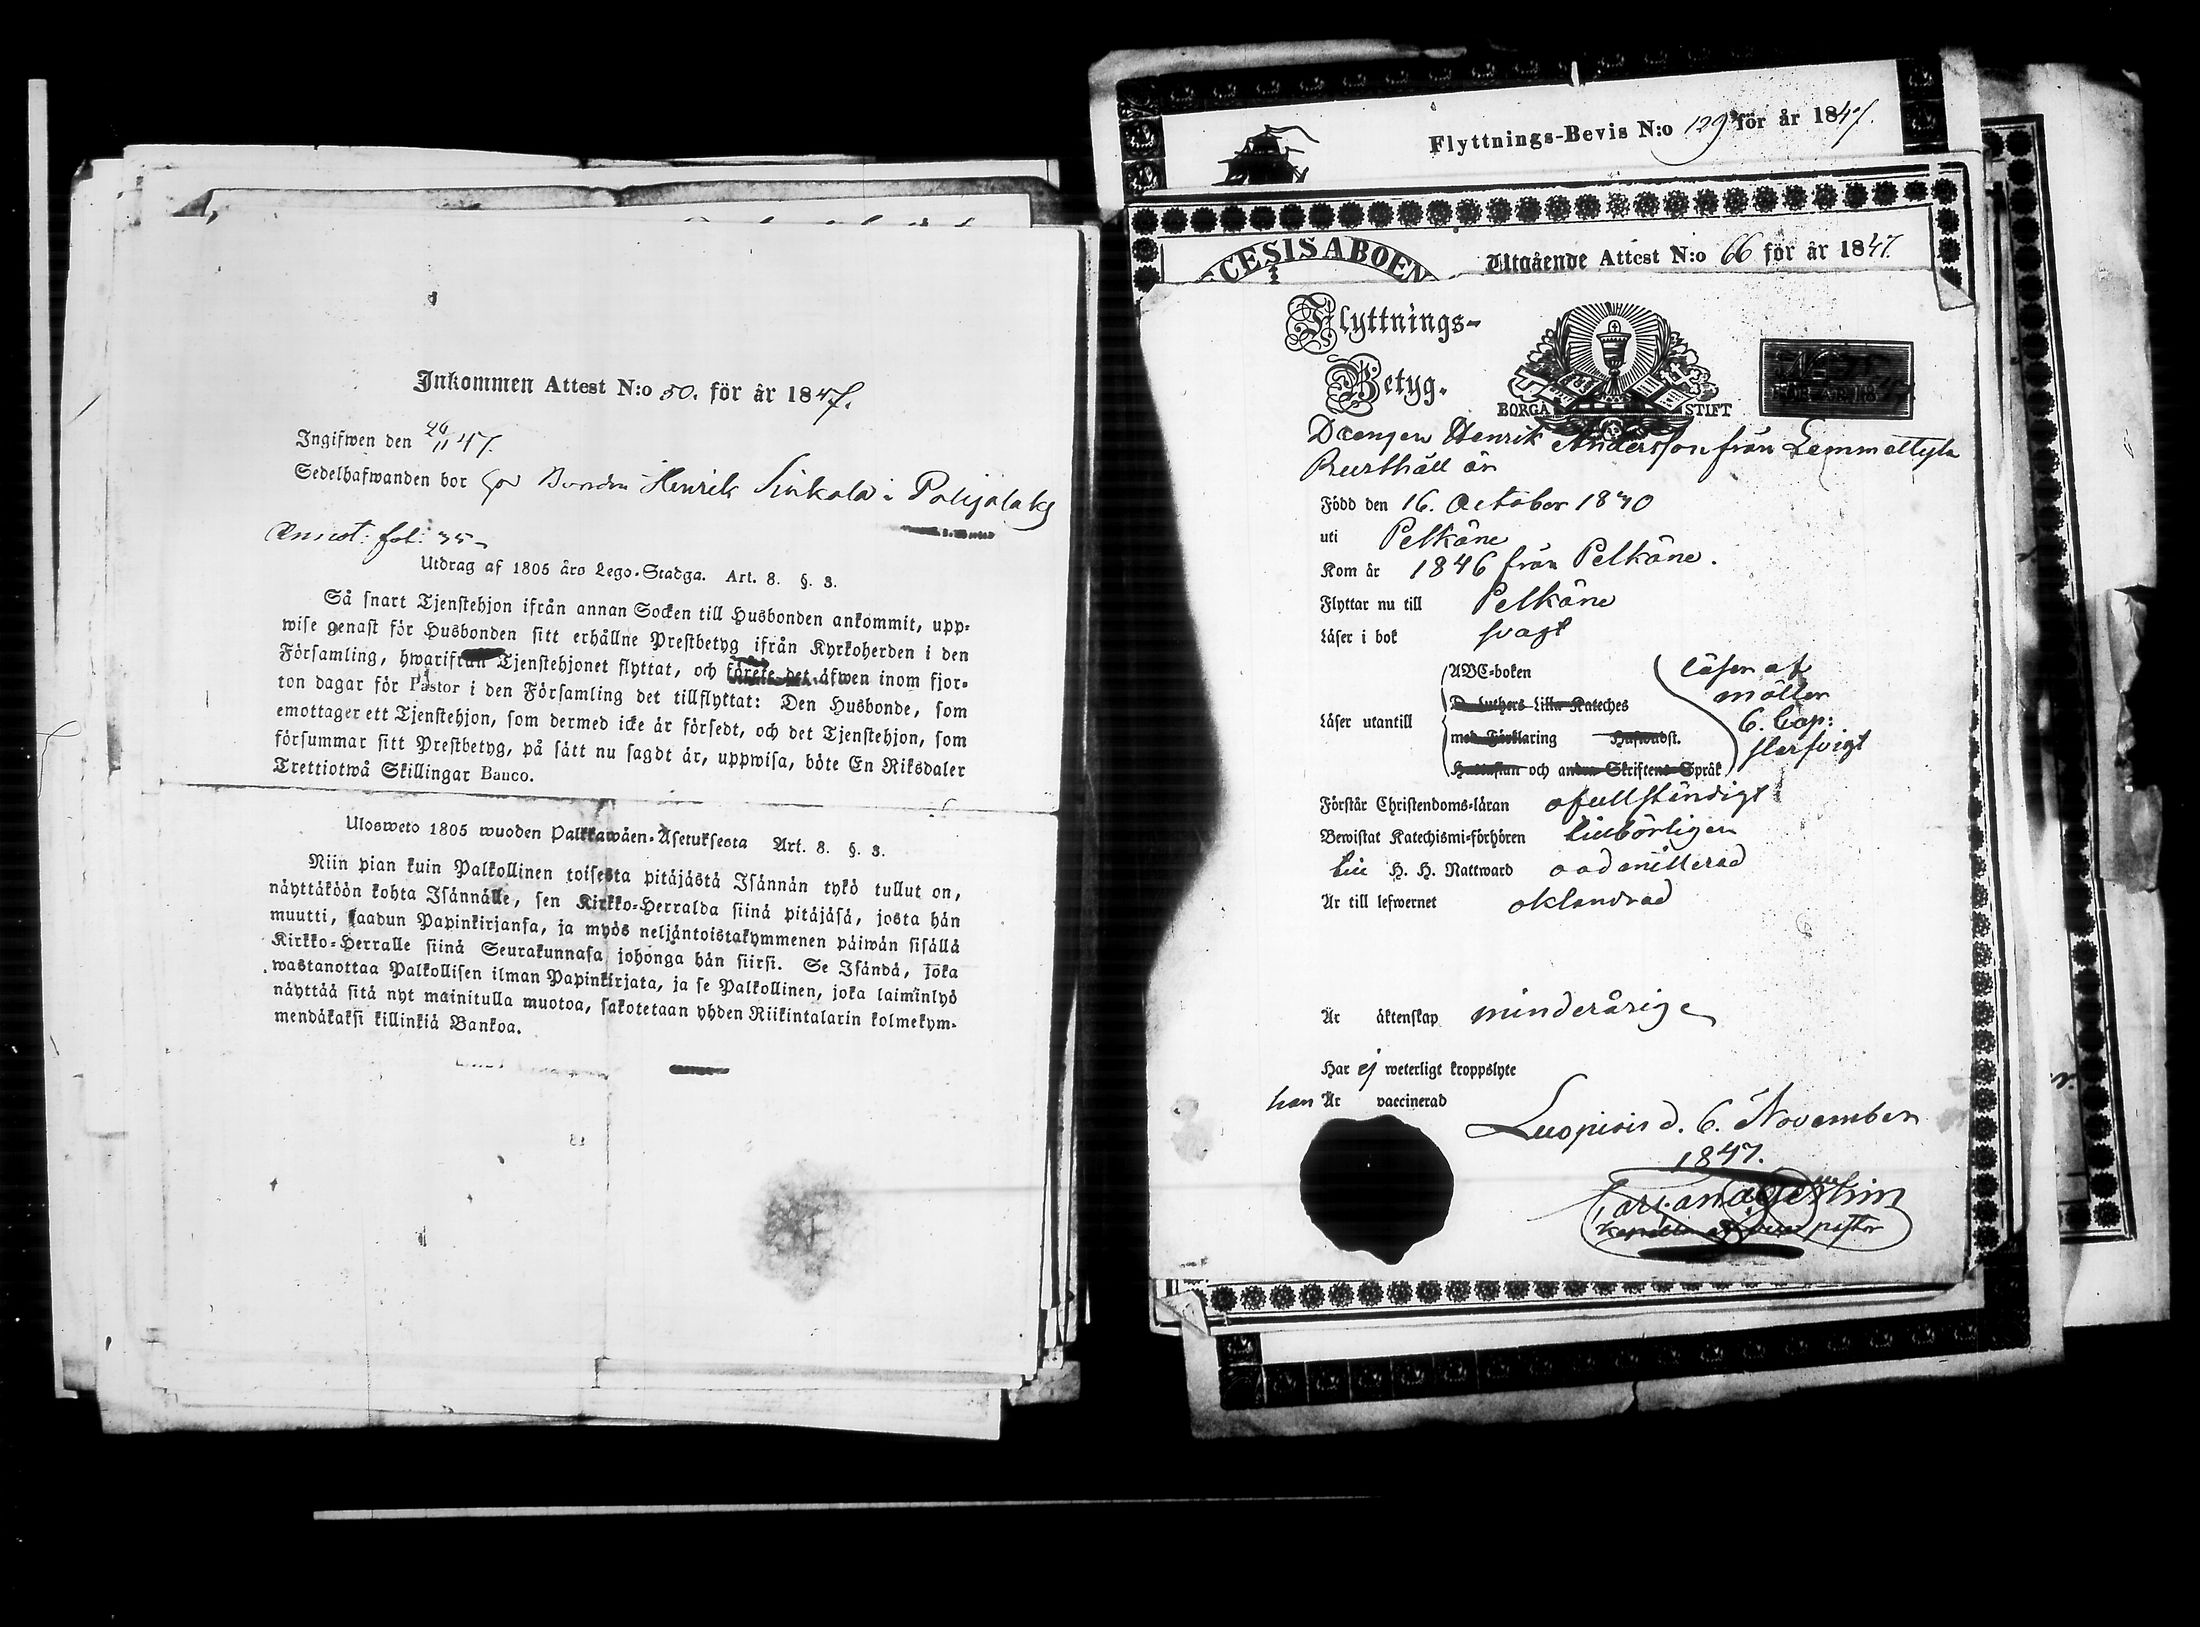 Inkommen Attest N:o 50. för år 1847.
Ingifwen den 26/11 47.
Sedelhafwanden bor hos Bonden Henrik Sinkola i Pohjalaks
Annot: fol: 35
Utdrag af 1805 års Lego-Stadga. Art. 8. §. 3.
Så snart Tjenstehjon ifrån annan Socken till Husbonden ankommit, upp-
wise genast för Husbonden sitt erhållne Prestbetyg ifrån Kyrkoherden i den
Församling, hwarifrån Tjenstehjonet flyttat, och förete det äfwen inom fjor-
ton dagar för Pastor i den Församling det tillflyttat: Den Husbonde, som
emottager ett Tjenstehjon, som dermed icke är försedt, och det Tjenstehjon, som
försummar sitt Prestbetyg, på sätt nu sagdt är, uppwisa, böte En Riksdaler
Trettiotwå Skillingar Banco.
Ulosweto 1805 wuoden Palkkawäen-Asetuksesta Art. 8. §. 3.
Niin pian kuin Palkollinen toisesta pitäjästä Isännän tykö tullut on,
näyttäköön kohta Isännälle, sen Kirkko-Herralda siinä pitäjäsä, josta hän
muutti, saadun Papinkirjansa, ja myös neljäntoistakymmenen päiwän sisällä
Kirkko-Herralle siinä Seurakunnasa johonga hän siirsi. Se Isändä, joka
wastanottaa Palkollisen ilman Papinkirjata, ja se Palkollinen, joka laiminlyö
näyttää sitä nyt mainitulla muotoa, sakotetaan yhden Riikintalarin kolmekym-
mendäkaksi killinkiä Bankoa.
Flyttnings-Bevis N:o 129 för år 1847.
CESIS ABOEN
Utgående Attest N:o 66 för år 1847.
Flyttnings-
Betyg.
BORGÅ STIFT
Drengen Henrik Andersson från Lemmettylä
Rusthåll är
Född den 16. October 1830
uti Pelkäne
Kom år 1846 från Pelkäne.
Flyttar nu till Pelkäne
Läser i bok svagt
ABC-boken
D. Luthers Lilla Kateches
Läser utantill
med Förklaring Hustavlst.
Hustaflan och andra Skriftens Språk
läser af
möller
6. Cap:
skrfvigt
Förstår Christendoms-läran ofullständigt
Bewistat Katechismi-förhören tillbörligen
till H. H. Nattward oadmitterad
Är till lefwernet oklandrad
Är äktenskap minderårige
Har ej weterligt kroppslyte
han Är vaccinerad
Luopiois d. 6. November
1847.